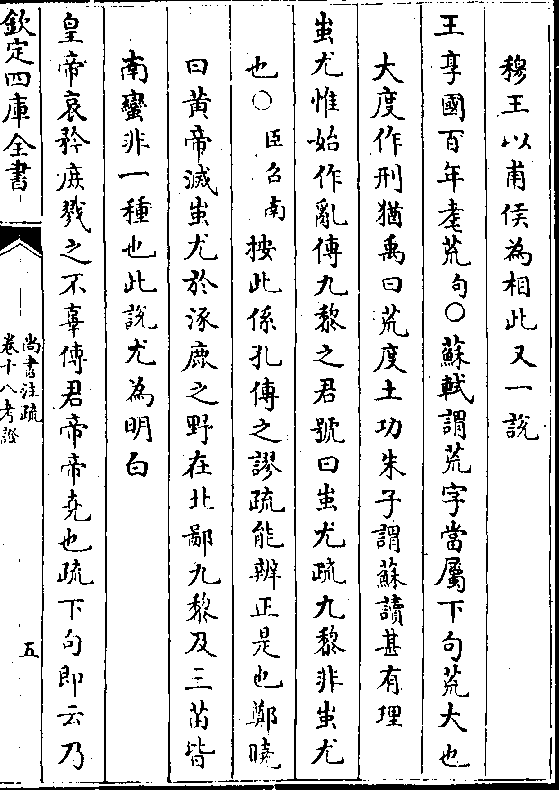 穆王以甫侯為相此又一說
王享國百年耄荒句○蘇軾謂荒字當屬下句荒大也
大度作刑猶禹曰荒度土功朱子謂蘇讀甚有理
蚩尤惟始作亂傳九黎之君號曰蚩尤疏九黎非蚩尤
也○臣召南按此係孔傳之謬疏能辨正是也鄭曉
曰黃帝滅蚩尤於涿鹿之野在北鄙九黎及三苗皆
南蠻非一種也此說尤為明白
皇帝哀矜庶戮之不辜傳君帝帝堯也疏下句即云乃
欽定四庫全書
尚書注疏
卷十八考證
五